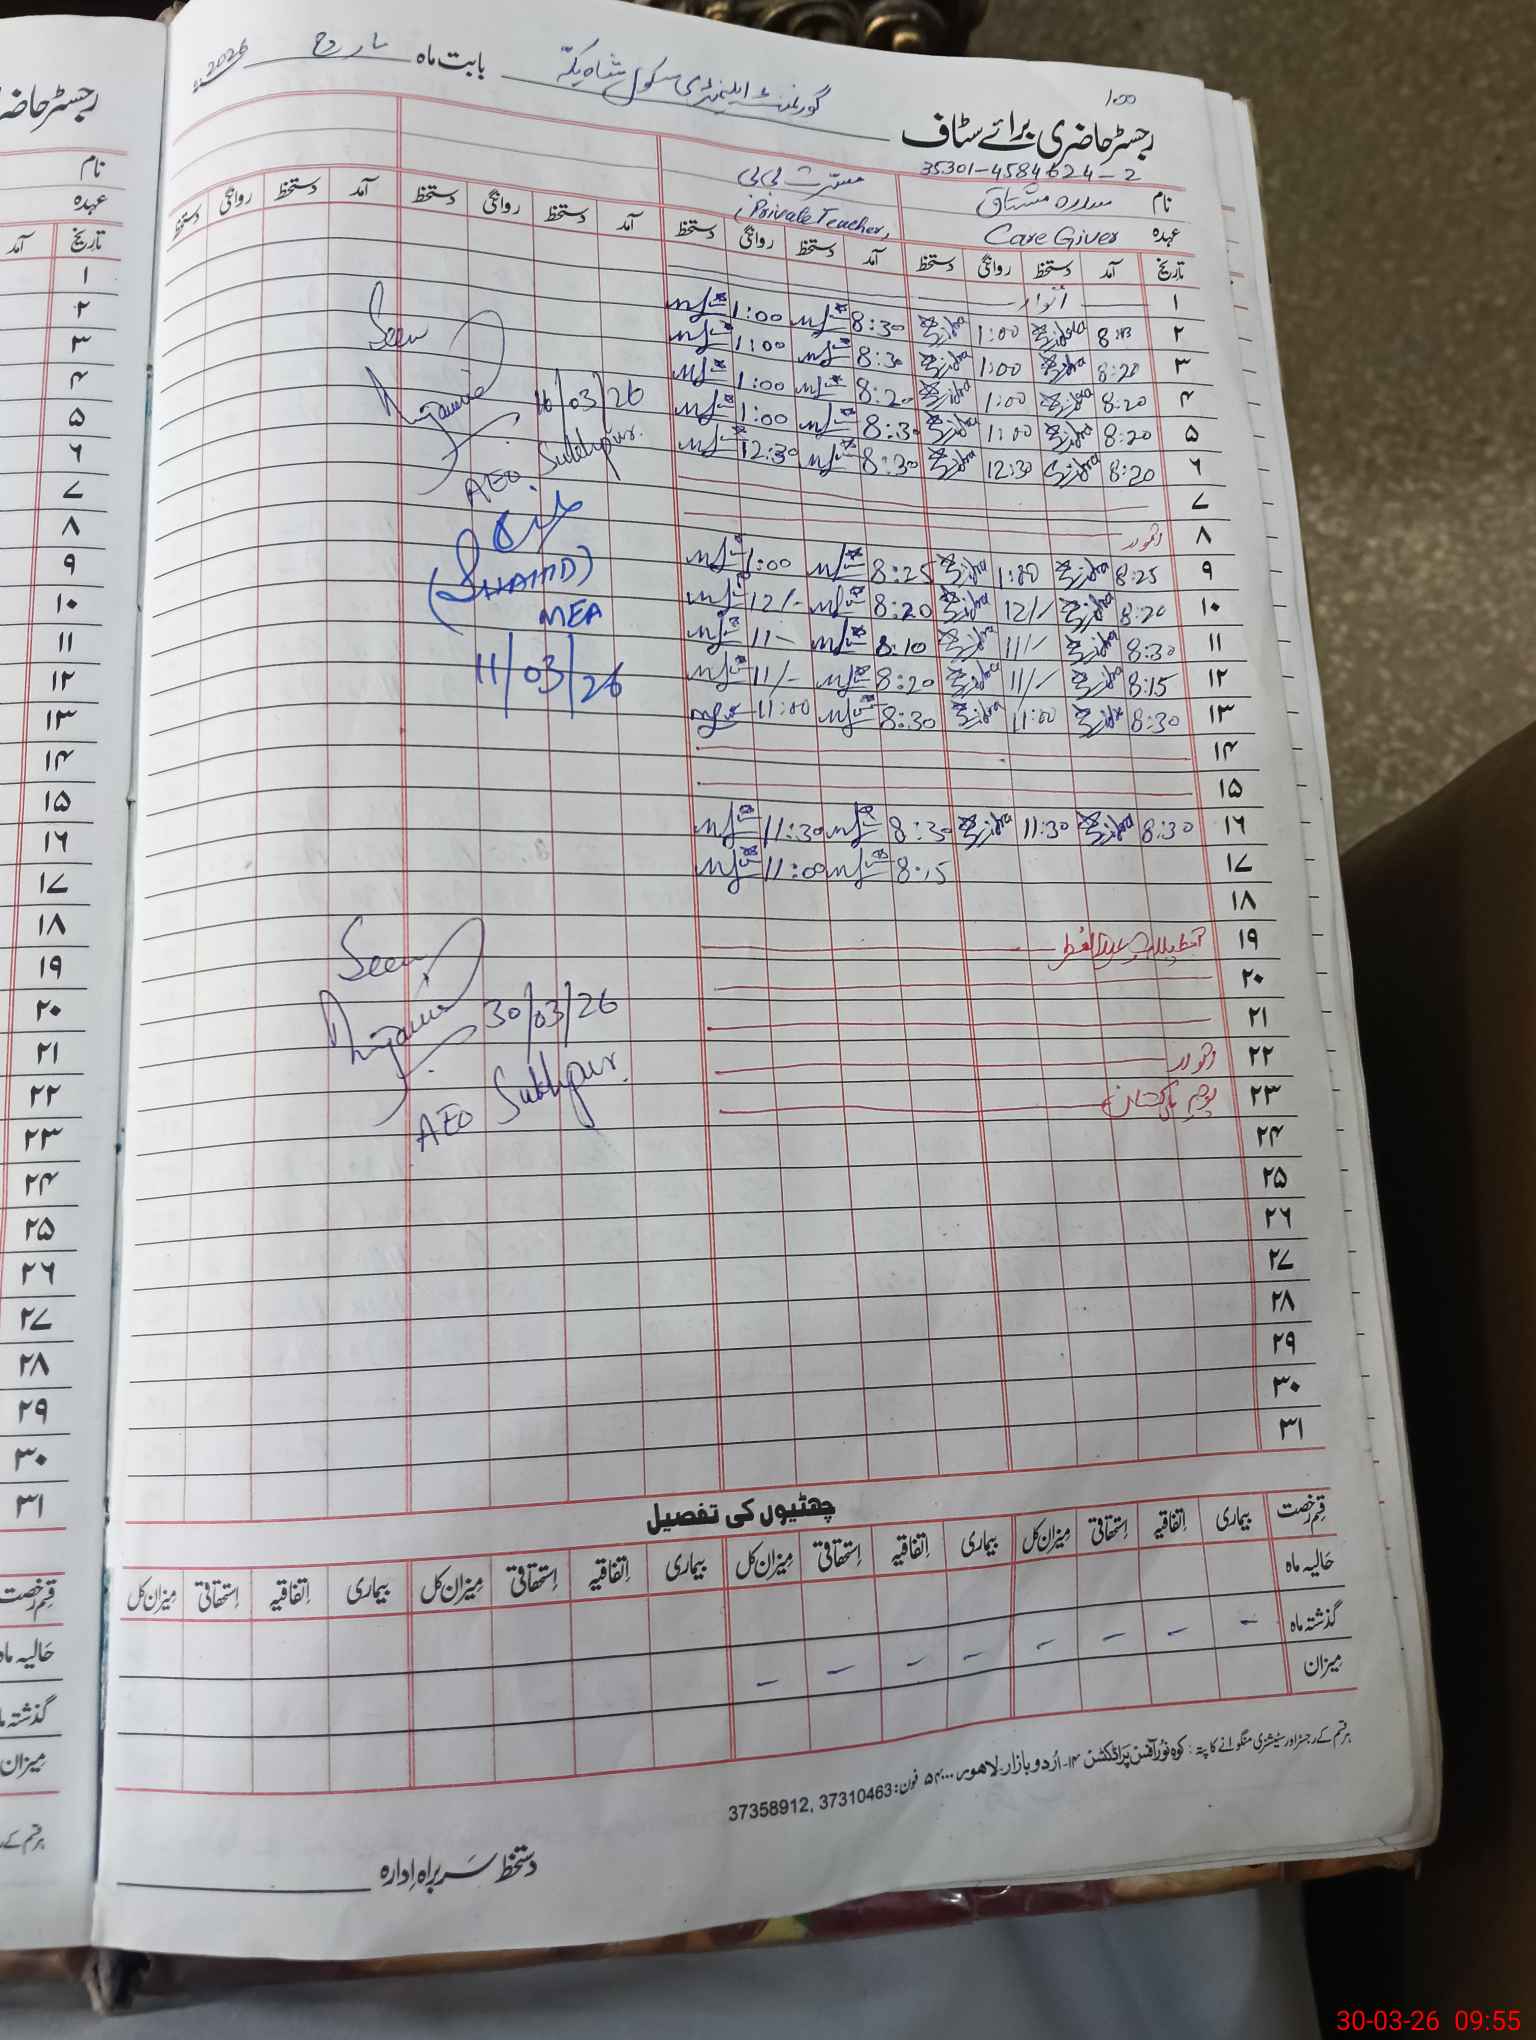 ۱۰۰
رجسٹر حاضری برائے سٹاف گورنمنٹ ایلیمنٹری سکول شاہ یکہ بابت ماہ مارچ 2026ء
35301-4584624-2
نام سدرہ مشتاق مسرت بی بی
عہدہ Care Giver (Private Teacher)
تاریخ آمد دستخط روانگی دستخط آمد دستخط روانگی دستخط آمد دستخط روانگی دستخط آمد دستخط روانگی دستخط
۱ اتوار
۲ 8:13 Sidra 1:00 Sidra 8:30 1:00
۳ 8:20 Sidra 1:00 Sidra 8:30 1:00
۴ 8:20 Sidra 1:00 Sidra 8:20 1:00
۵ 8:20 Sidra 1:00 Sidra 8:30 1:00
۶ 8:20 Sidra 12:30 Sidra 8:30 12:30
۷
۸ اتوار
۹ 8:25 Sidra 1:00 Sidra 8:25 1:00
۱۰ 8:20 Sidra 12/- Sidra 8:20 12/-
۱۱ 8:30 Sidra 11/- Sidra 8:10 11-
۱۲ 8:15 Sidra 11/- Sidra 8:20 11/-
۱۳ 8:30 Sidra 11:00 Sidra 8:30 11:00
۱۴
۱۵
۱۶ 8:30 Sidra 11:30 Sidra 8:30 11:30
۱۷ 8:15 11:00
۱۸
۱۹ تعطیلات عیدالفطر
۲۰
۲۱
۲۲ اتوار
۲۳ یوم پاکستان
۲۴
۲۵
۲۶
۲۷
۲۸
۲۹
۳۰
۳۱
Seen
16/03/26
AEO Sukhpur.
(SHAHID)
MEA
11/03/26
Seen
30/03/26
AEO Sukhpur.
چھٹیوں کی تفصیل
قسم رخصت بیماری اتفاقیہ استحقاقی میزان کل بیماری اتفاقیہ استحقاقی میزان کل بیماری اتفاقیہ استحقاقی میزان کل بیماری اتفاقیہ استحقاقی میزان کل
حالیہ ماہ
گذشتہ ماہ - - - - - - - -
میزان
ہر قسم کے رجسٹر اور سٹیشنری منگوانے کا پتہ: کوہ نور آفسن پراڈکشن ۱۴-اُردو بازار-لاہور ۵۴۰۰۰ فون: 37310463 ,37358912
دستخط سربراہ ادارہ
رجسٹر حاضر
نام
عہدہ
تاریخ آمد
۱
۲
۳
۴
۵
۶
۷
۸
۹
۱۰
۱۱
۱۲
۱۳
۱۴
۱۵
۱۶
۱۷
۱۸
۱۹
۲۰
۲۱
۲۲
۲۳
۲۴
۲۵
۲۶
۲۷
۲۸
۲۹
۳۰
۳۱
قسم رخصت
حالیہ ماہ
گذشتہ ما
میزان
ہر قسم کے
30-03-26 09:55